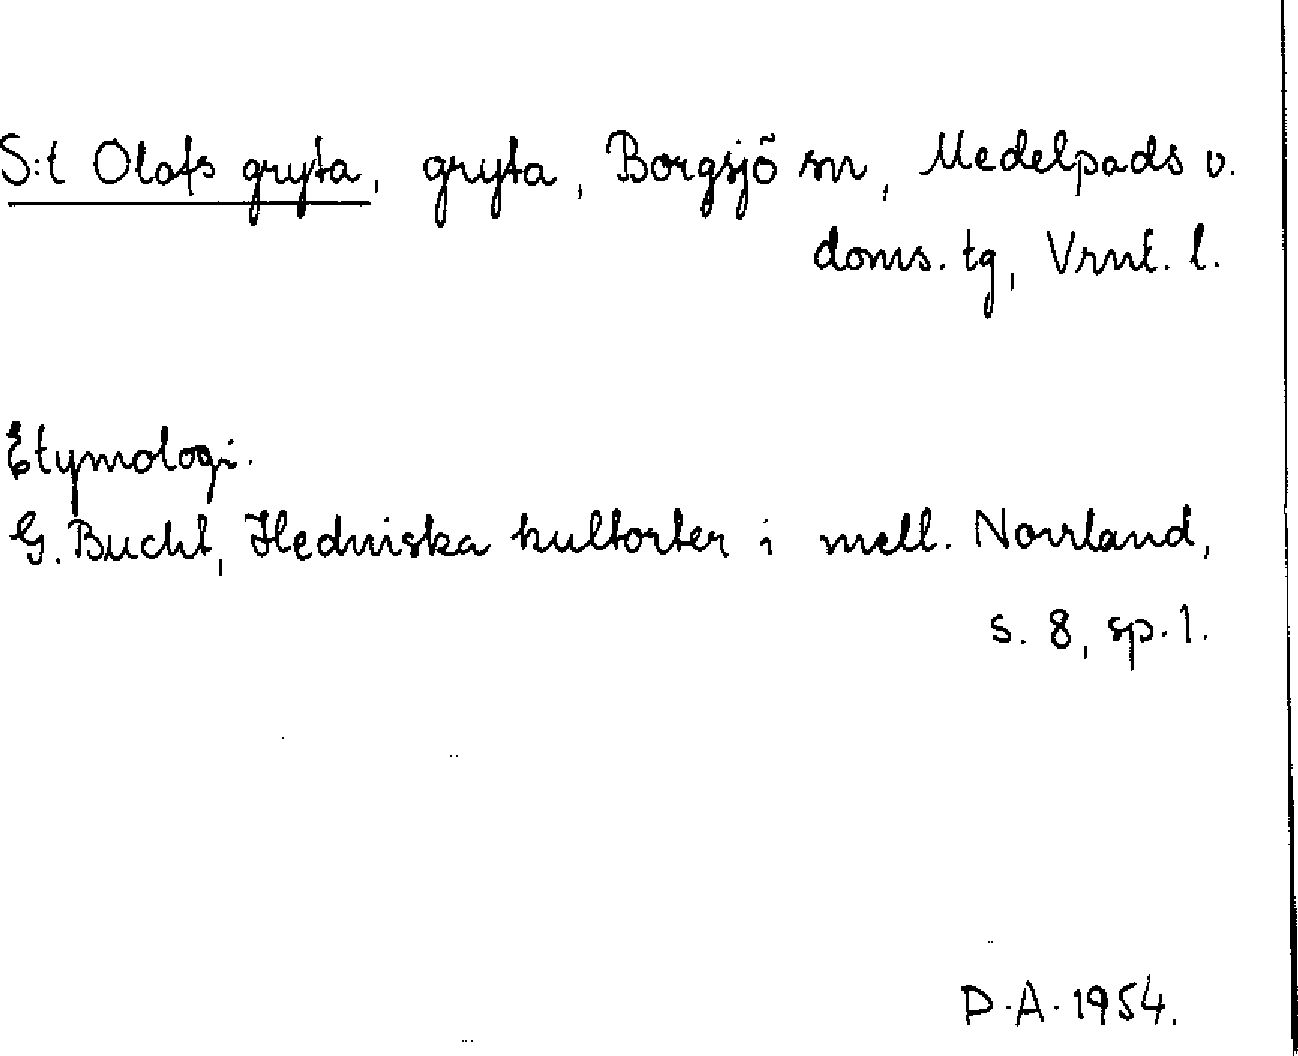 S:t Olofs gryta, gryta, Borgsjö sn, Medelpads v.
doms. tg, Vrnl. l.
Etymologi.
G. Bucht, Hedniska kultorter i mell. Norrland,
s. 8, sp. 1.
D.A. 1954.